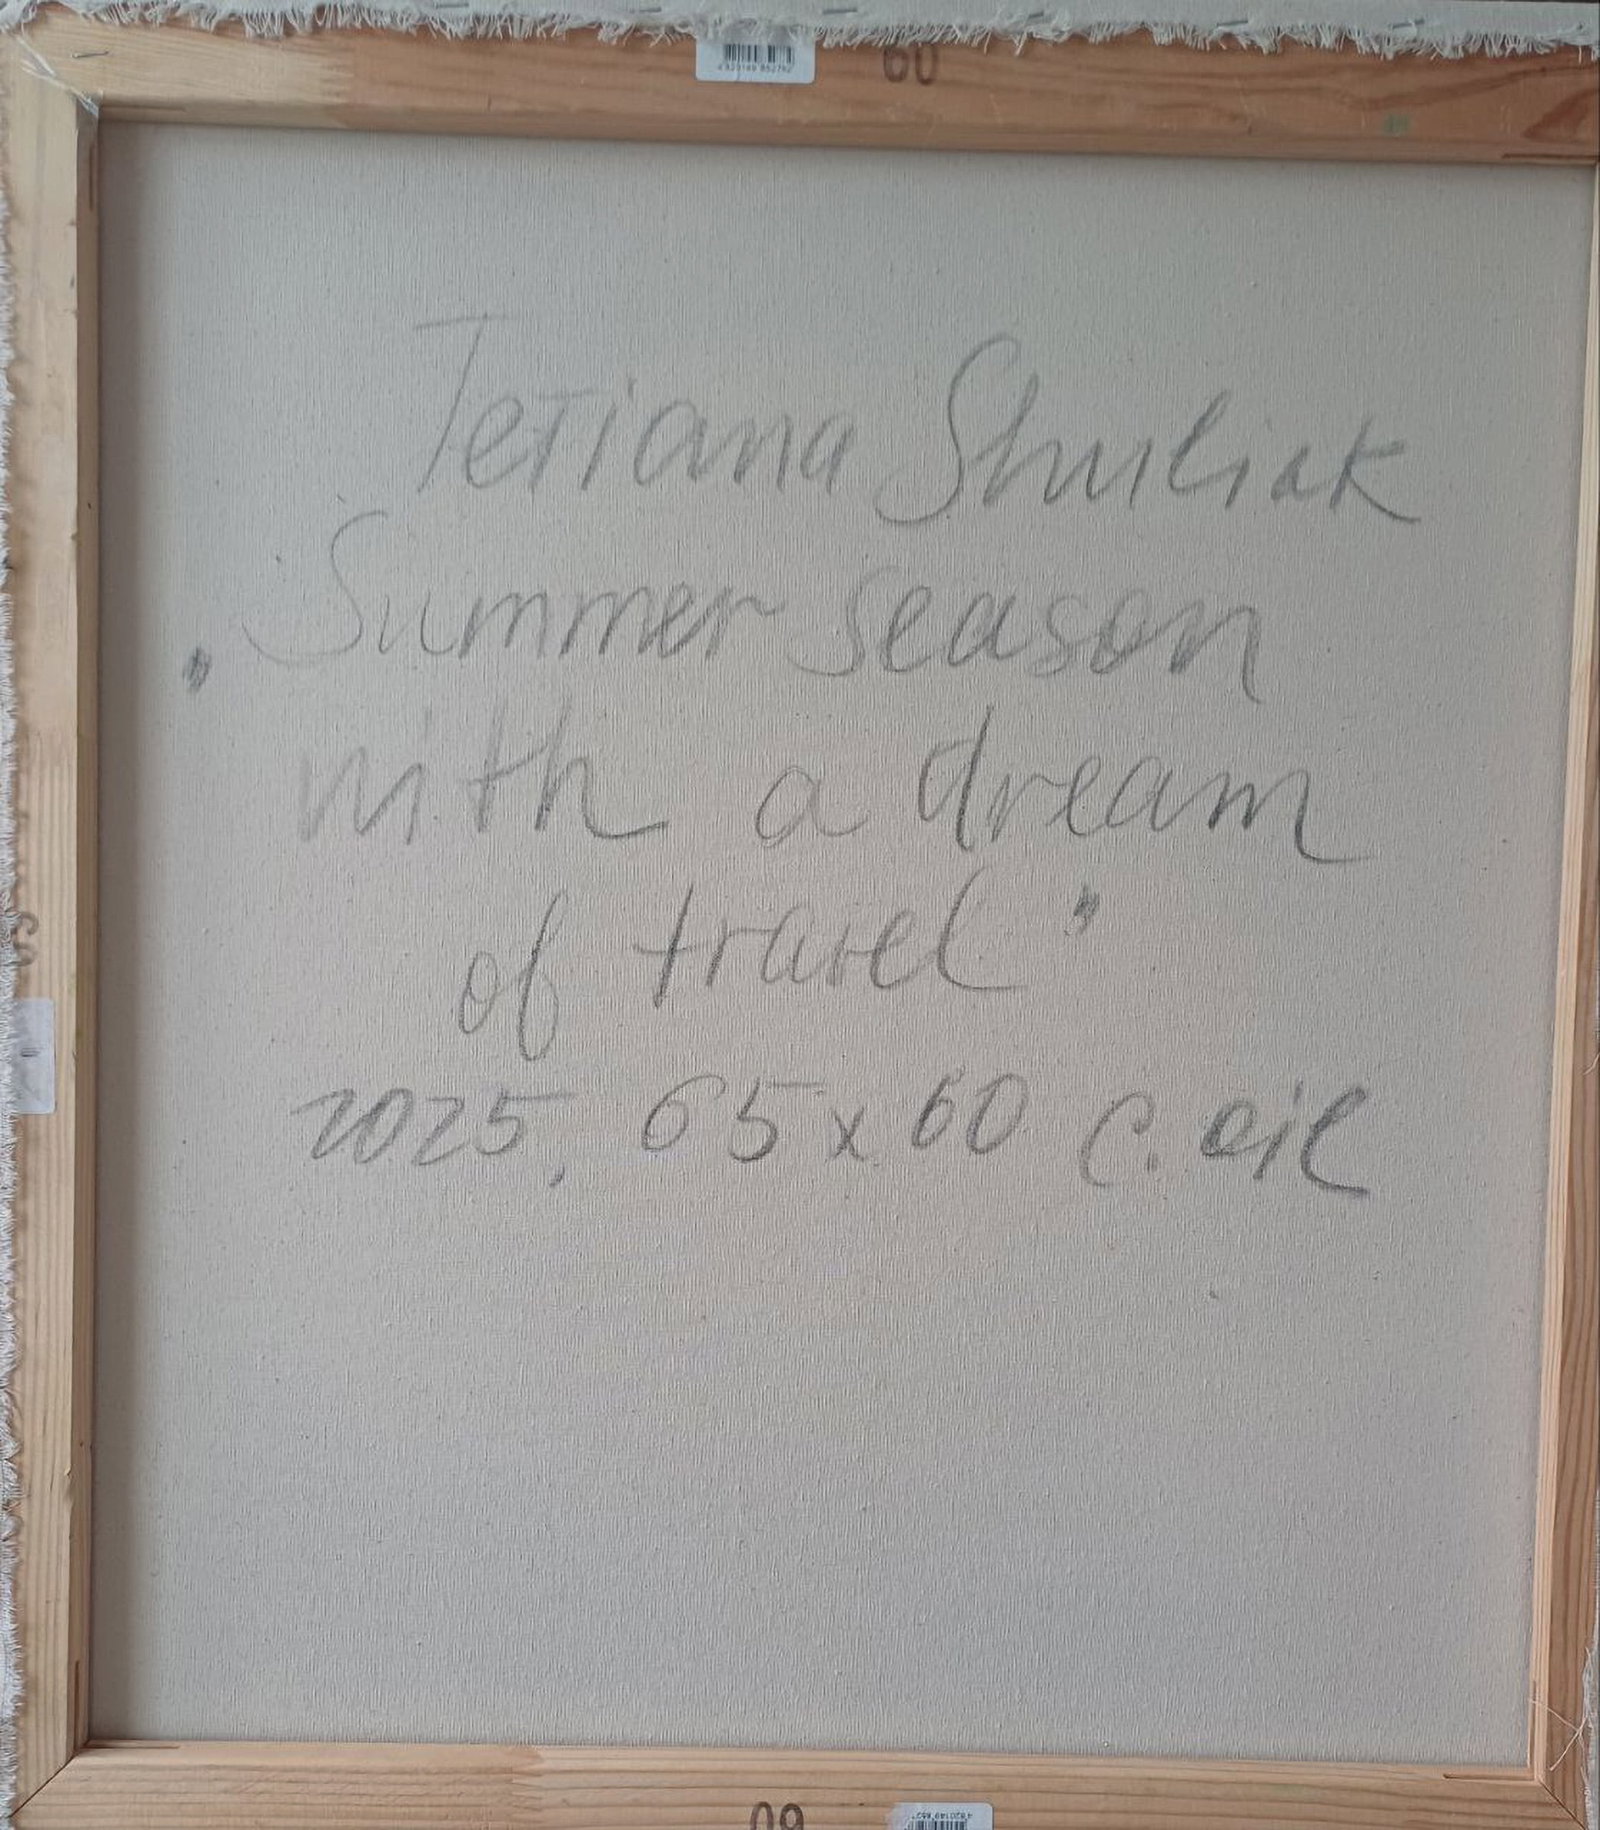 60
Tetiana Shuliak
„Summer season
with a dream
of travel"
2025, 65x60 c. oil
60